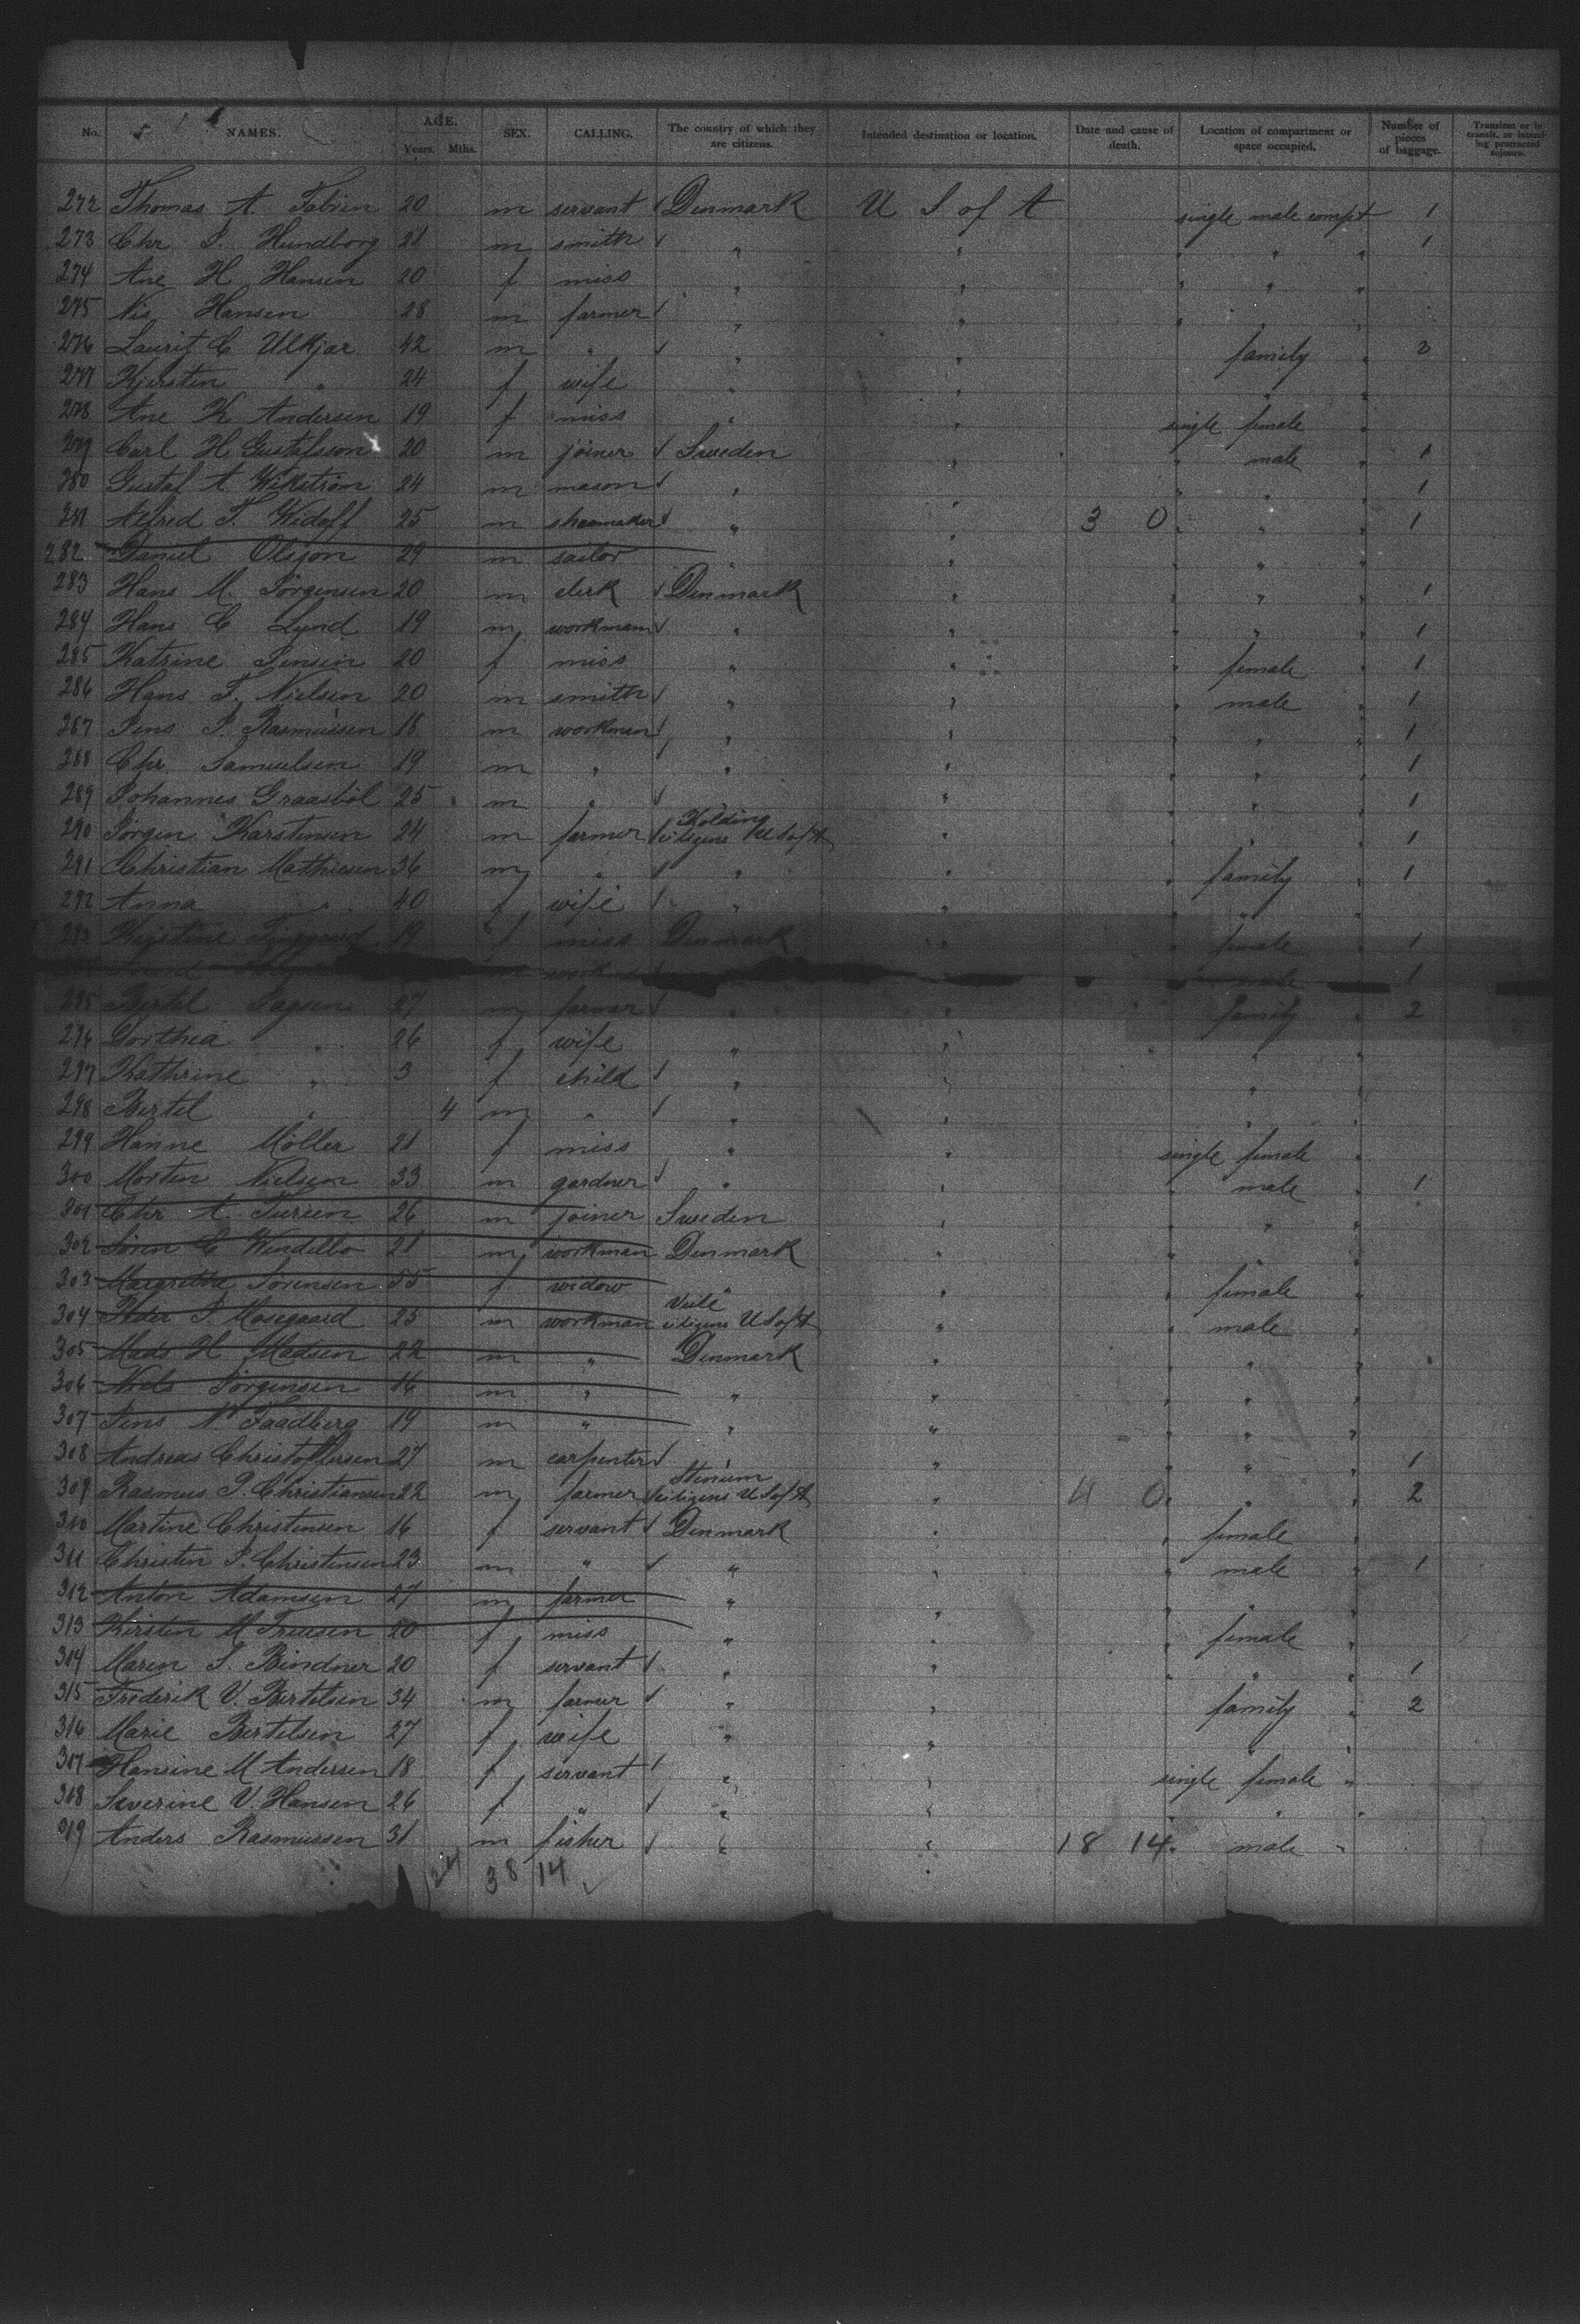 No. NAMES. AGE. Years. Mths. SEX. CALLING. The country of which they are citizens. Intended destination or location. Date and cause of death. Location of compartment or space occupied. Number of pieces of baggage. Transient or in transit, or intending protracted sojourn.
272 Thomas A. Fabrin 20 m servant Denmark U S of A single male compt 1
273 Chr. P. Hundborg 21 m smith " " " " " 1
274 Ane H Hansen 20 f miss " " " " "
275 Nis Hansen 28 m farmer " " " " "
276 Laurits C Ulkjar 42 m " " " family " 2
277 Kjersten " 24 f wife " " " "
278 Ane K Andersen 19 f miss " " single female "
279 Carl H Gustafsson 20 m joiner Sweden " " male " 1
280 Gustaf A Wikström 24 m mason " " " " " 1
281 Alfred T. Widoff 25 m shoemaker " " 3 0 " " " 1
282 Daniel Olsson 29 m sailor " " " " "
283 Hans M. Jörgensen 20 m clerk Denmark " " " " 1
284 Hans C Lynd 19 m workman " " " " " 1
285 Katrine Jensen 20 f miss " " " female " 1
286 Hans T. Nielsen 20 m smith " " " male " 1
287 Jens P. Rasmussen 18 m workman " " " " " 1
288 Chr. Samuelsen 19 m " " " " " " 1
289 Johannes Graasböl 25 m " " " " " 1
290 Jörgen Karstensen 24 m farmer Kolding citizens U S of A " " " " 1
291 Christian Mathiesen 36 m " " " " family " 1
292 Anna " 40 f wife " " " " "
293 19 f miss Denmark " " female " 1
male 1
295 Bertel 27 m farmer " " " family " 2
296 Dorthea " 26 f wife " " " "
297 Kathrine " 3 f child " " " "
298 Bertel " 4 m " " " " "
299 Hanne Möller 21 f miss " " single female "
300 Morten Nielsen 33 m gardner " " " male " 1
301 Chr A. 26 m joiner Sweden " " " "
302 Sören C Wendelbo 21 m workman Denmark " " " "
303 Margrethe Sörensen 55 f widow " " " female "
304 Peder P Mosegaard 25 m workman Veile citizens U S of A " " male "
305 Mads H Madsen 22 m " Denmark " " " "
306 Niels Jörgensen 16 m " " " " " "
307 Jens N Faadberg 19 m " " " " " "
308 Andreas Christoffersen 27 m carpenter " " " " 1
309 Rasmus P. Christiansen 22 m farmer citizens U S of A " 4 0 " " " 2
310 Martine Christensen 16 f servant Denmark " " female "
311 Christen P. Christensen 23 m " " " " male " 1
312 Anton Adamsen 27 m farmer " " " " "
313 Kirsten M 20 f miss " " " female "
314 Maren S. Bindner 20 f servant " " " " " 1
315 Frederik V. Bertelsen 34 m farmer " " family " 2
316 Marie Bertelsen 27 f wife " " " "
317 Hansine M Andersen 18 f servant " " single female "
318 Severine V. Hansen 26 f " " " " " "
319 Anders Rasmussen 31 m fisher " " 18 14 " male "
124 38 14